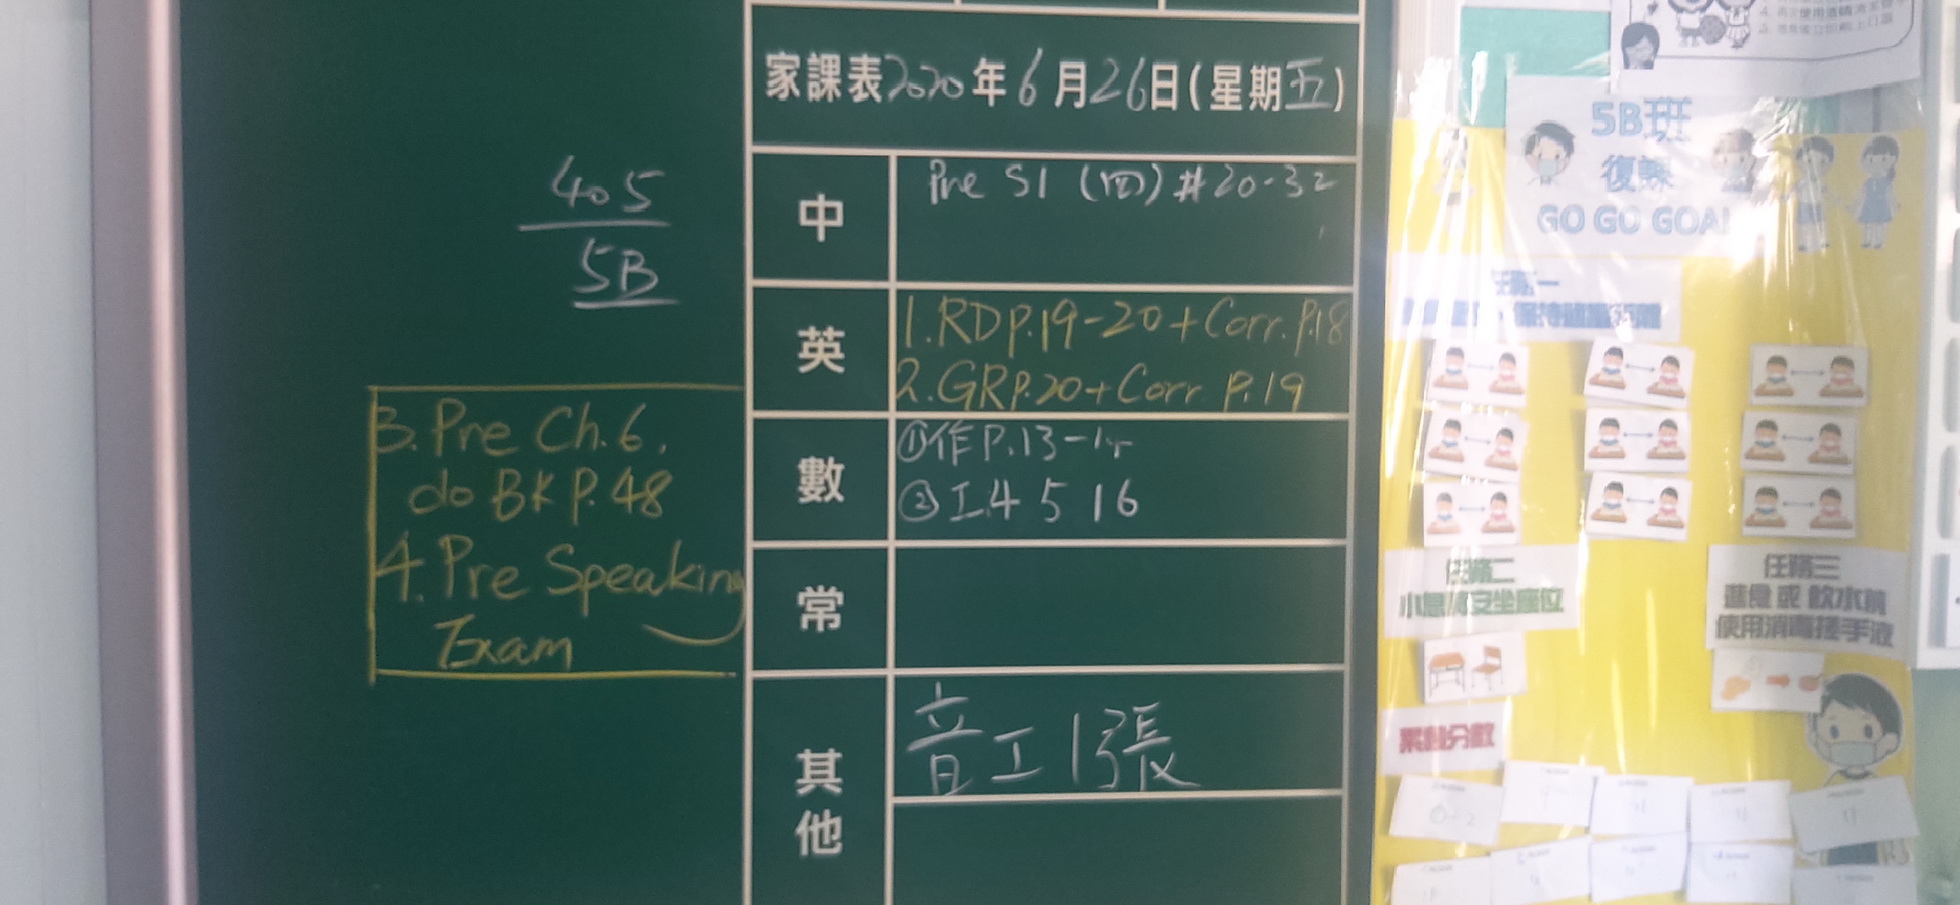 家課表2020年6月26日(星期五)
405
5B
中
Pre S1 (四) #20-32
英
1. RD P.19-20 + Corr. P.18
2. GR P.20 + Corr. P.19
3. Pre Ch.6,
do BK P.48
4. Pre Speaking
Exam
數
①作P.13-
②工4 5 16
常
其他
音工1張
5B班
復課
GO GO GOAL
任務一
任務二
小息 安坐座位
任務三
進食或飲水前
使用消毒搓手液
累積分數